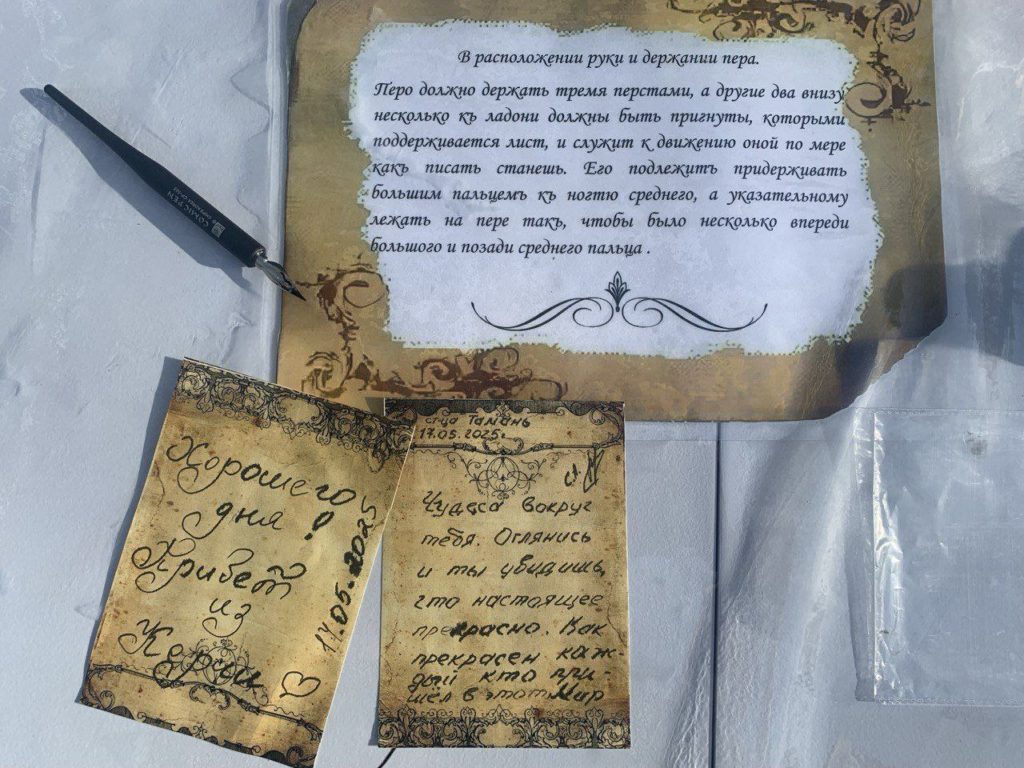 В расположении руки и держании пера.
Перо должно держать тремя перстами, а другие два внизу
несколько къ ладони должны быть пригнуты, которыми
поддерживается лист, и служит к движению оной по мере
какъ писать станешь. Его подлежитъ придерживать
большим пальцемъ къ ногтю среднего, а указательному
лежать на пере такъ, чтобы было несколько впереди
большого и позади среднего пальца .
COMIC PEN
Хорошего
дня!
Привет
из
Керчи
17.05.2025
Тамань
17.05.2025г
Чудеса вокруг
тебя. Оглянись
и ты увидишь,
что настоящее
прекрасно. Как
прекрасен каж-
дый кто при-
шёл в этот Мир